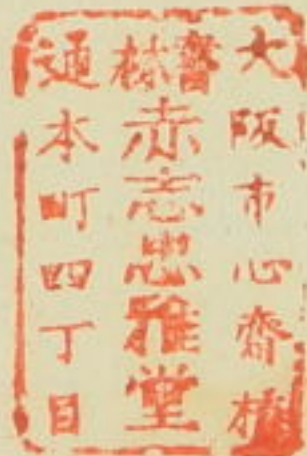 大阪市心齋橋
書林赤志忠雅堂
通本町四丁目